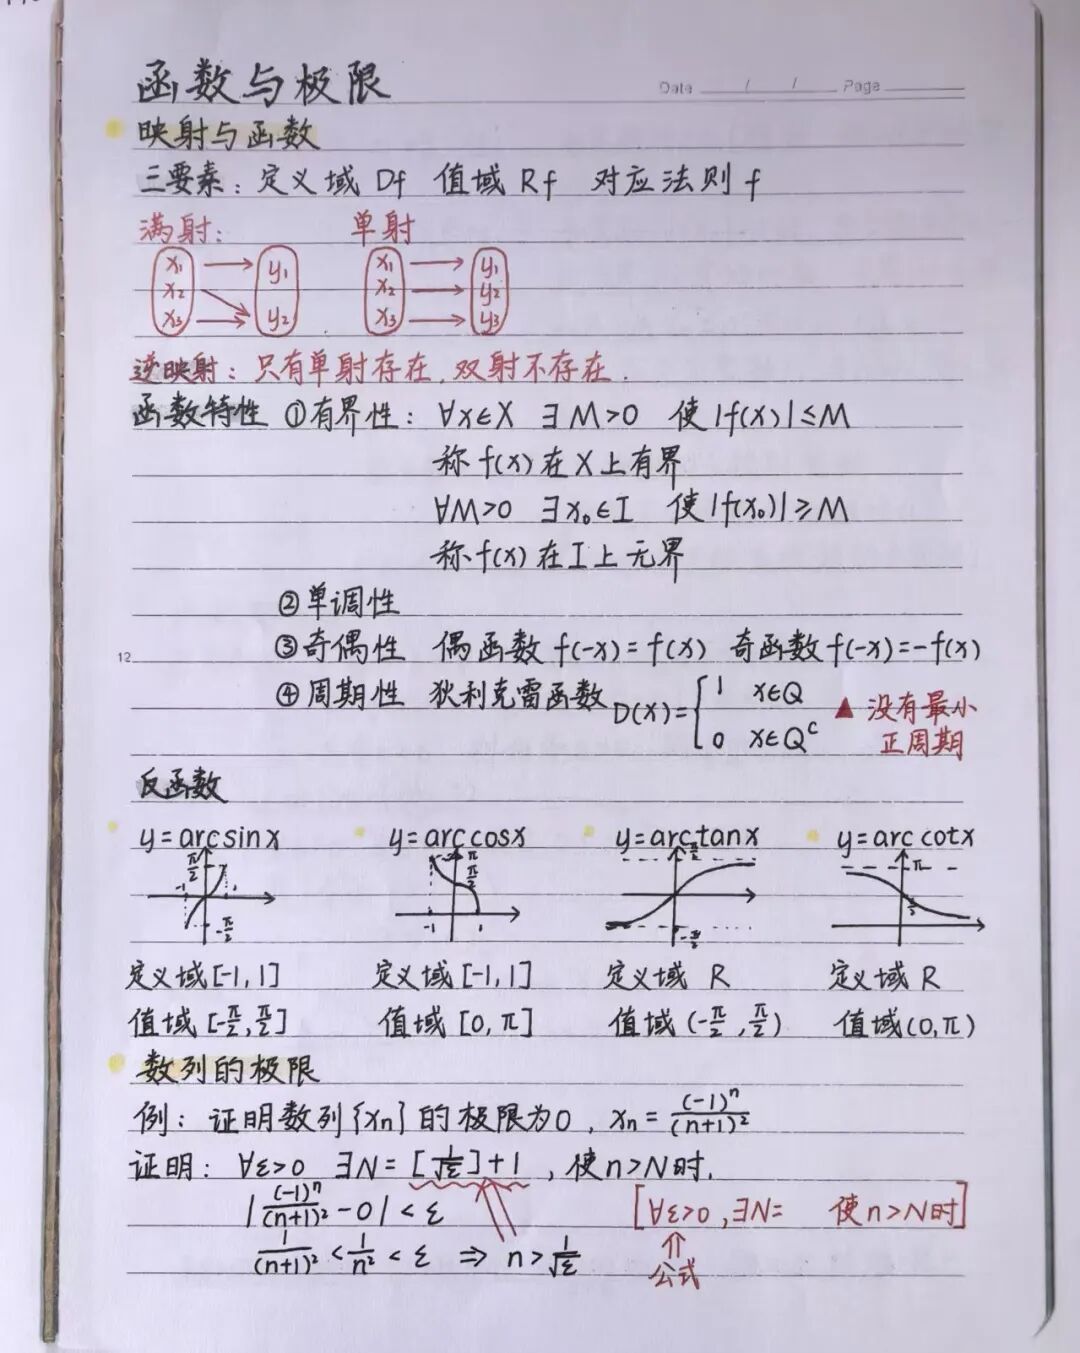 函数与极限
Date / / Page
映射与函数
三要素：定义域 Df 值域 Rf 对应法则 f
满射： 单射
x₁ y₁ x₁ y₁
x₂ x₂ y₂
x₃ y₂ x₃ y₃
逆映射：只有单射存在，双射不存在．
函数特性 ①有界性： ∀x∈X ∃M>0 使|f(x)|≤M
称f(x)在X上有界
∀M>0 ∃x₀∈I 使|f(x₀)|≥M
称f(x)在I上无界
②单调性
12
③奇偶性 偶函数f(-x)=f(x) 奇函数f(-x)=-f(x)
④周期性 狄利克雷函数 D(x)={ 1 x∈Q
0 x∈Qᶜ
▲ 没有最小
正周期
反函数
y=arcsinx y=arccosx y=arctanx y=arccotx
π/2 -1 1 -π/2
π π/2 -1 1
π/2 -π/2
π π/2
定义域[-1,1] 定义域[-1,1] 定义域 R 定义域 R
值域[-π/2,π/2] 值域[0,π] 值域(-π/2,π/2) 值域(0,π)
数列的极限
例：证明数列{xn}的极限为0，xn=(-1)ⁿ/(n+1)²
证明：∀ε>0 ∃N=[1/√ε]+1，使n>N时．
|(-1)ⁿ/(n+1)²-0|<ε
[∀ε>0,∃N= 使n>N时]
1/(n+1)²<1/n²<ε ⇒ n>1/√ε
⇑
公式